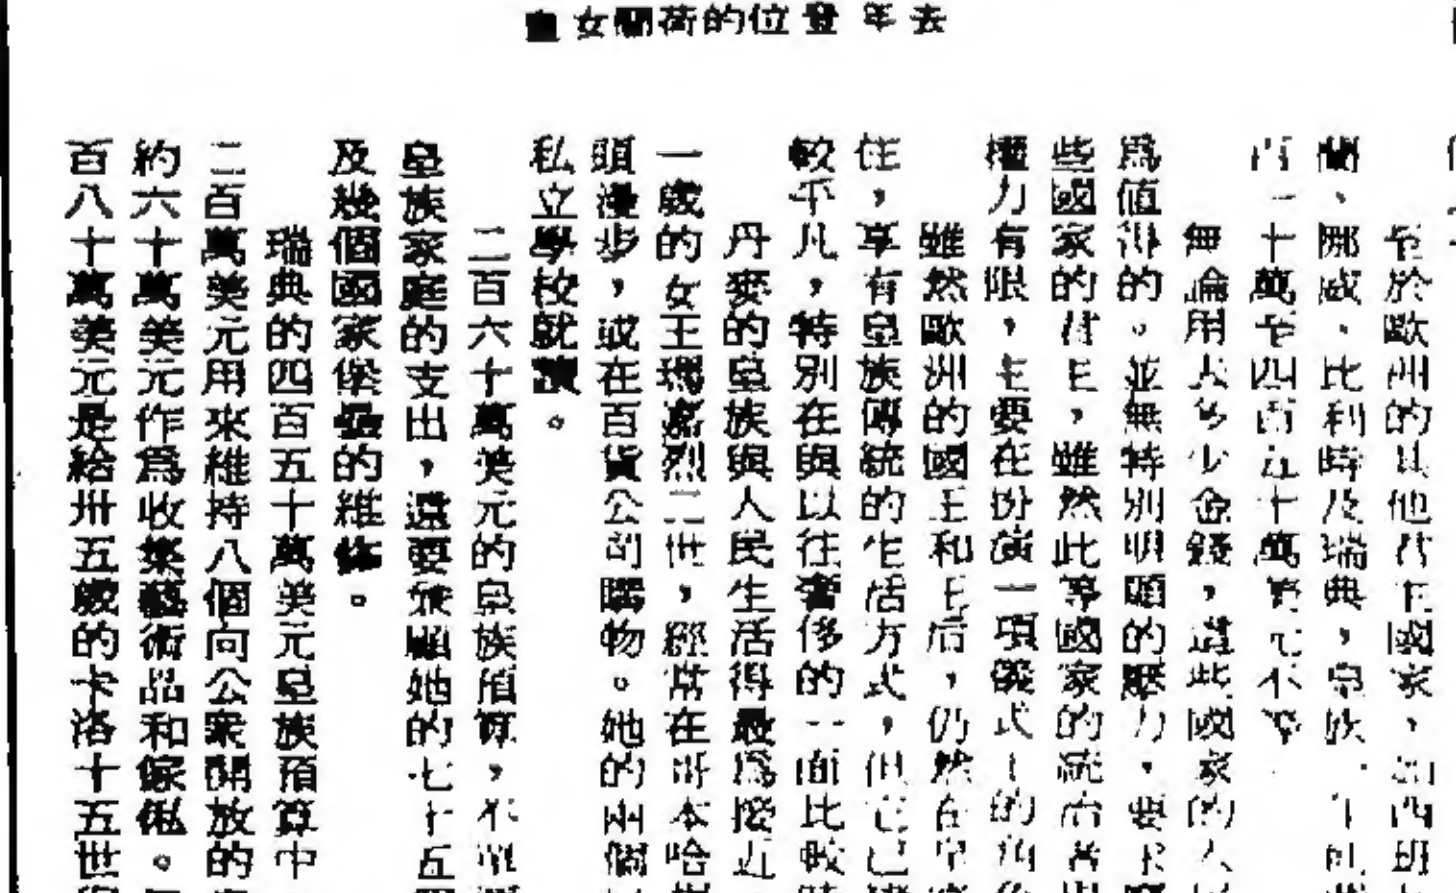 去年登位的荷蘭女皇
至於歐洲的其他君主國家，如西班
蘭、挪威、比利時及瑞典，皇族
百二十萬至四百五十萬美元不等
無論用大多少金錢，這些國家的人
爲值得的。並無特別明顯的壓力，要求
些國家的君王，雖然此等國家的統治者
權力有限，主要在扮演一項儀式上的角
雖然歐洲的國王和王后，仍然在皇
住，享有皇族傳統的生活方式，但它已
較平凡，特別在與以往奢侈的一面比較
丹麥的皇族與人民生活得最爲接近
一歲的女王瑪嘉烈二世，經常在哥本哈
頭漫步，或在百貨公司購物。她的兩個
私立學校就讀。
二百六十萬美元的皇族預算，不單
皇族家庭的支出，還要兼顧她的七十五
及幾個國家堡壘的維修。
瑞典的四百五十萬美元皇族預算中
二百萬美元用來維持八個向公衆開放的
約六十萬美元作爲收集藝術品和傢俬。
百八十萬美元是給卅五歲的卡洛十五世